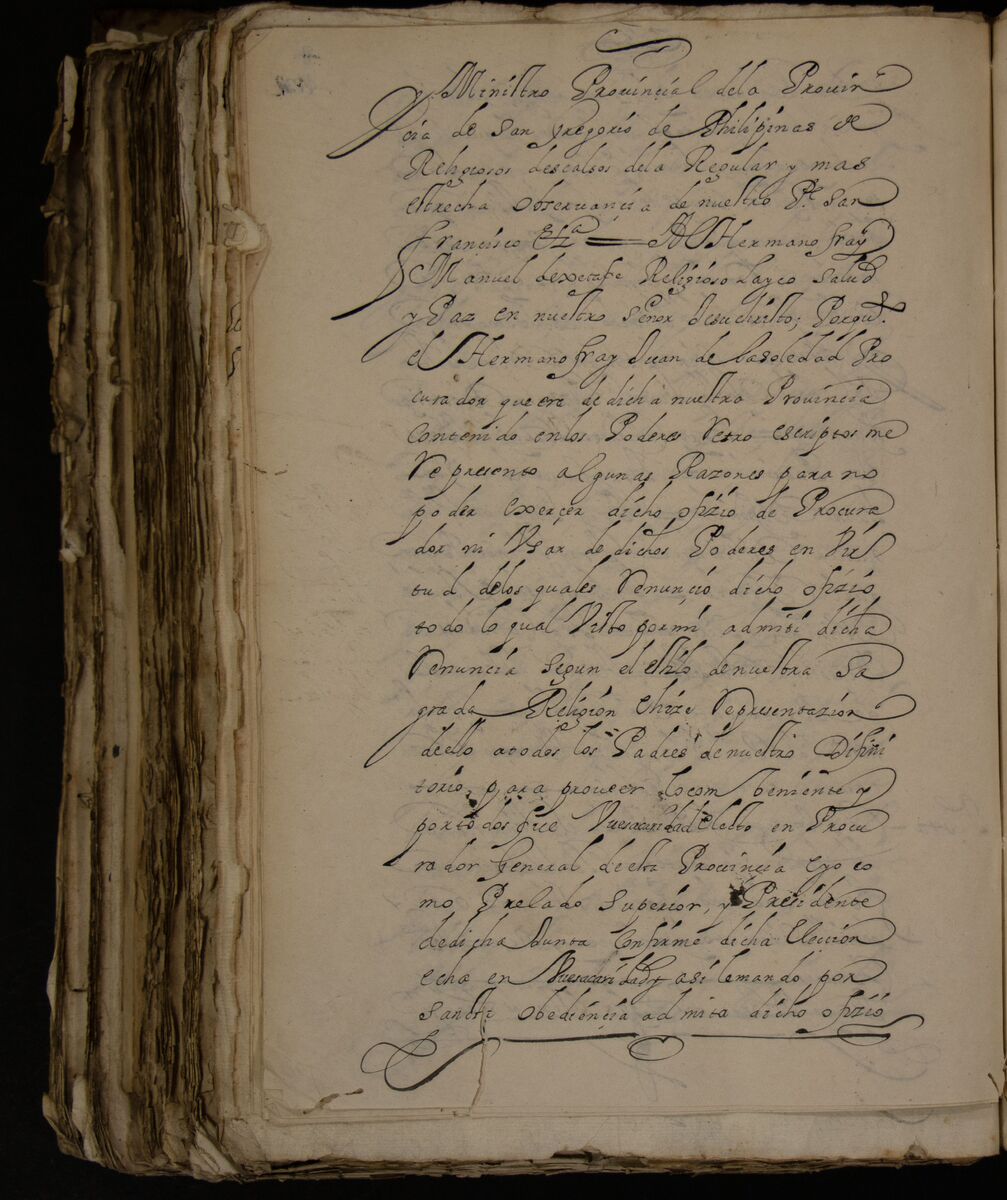 y Ministro Provincial dela Provin
cia de San gregorio de Philipinas de
Religiosos descalsos dela Regular y mas
estrecha obseruançia de nuestro Pe. San
Francisco Etza = Al Hermano fray
Manuel dexetafe Religioso Layco Salud
y Paz en nuestro Señor Jesuchristo; Porqu.e
el Hermano fray Juan de la soledad Pro
curador que era de dicha nuestra Provincia
contenido en los Poderes Retro escriptos me
Represento algunas Razones para no
poder exerçer dicho ofizio de Procura
dor ni Usar de dichos Poderes en Vir
tud delos quales Renunçio dicho ofizio
todo lo qual Visto por mi admiti dicha
Renuncia segun el estilo de nuestra Sa
grada Religion ehize Representazion
de ello atodos los Padres de nuestro Difini
torio, para proueer lo com beniente y
por todos fue Vuesacaridad electo en Procu
rador General de esta Provincia eyo co
mo Prelado Superior, y Presidente
de dicha Junta Confirme dicha Eleccion
echa en Vuesacaridad y asi le mando por
Sancta obediençia admita dicho ofizio